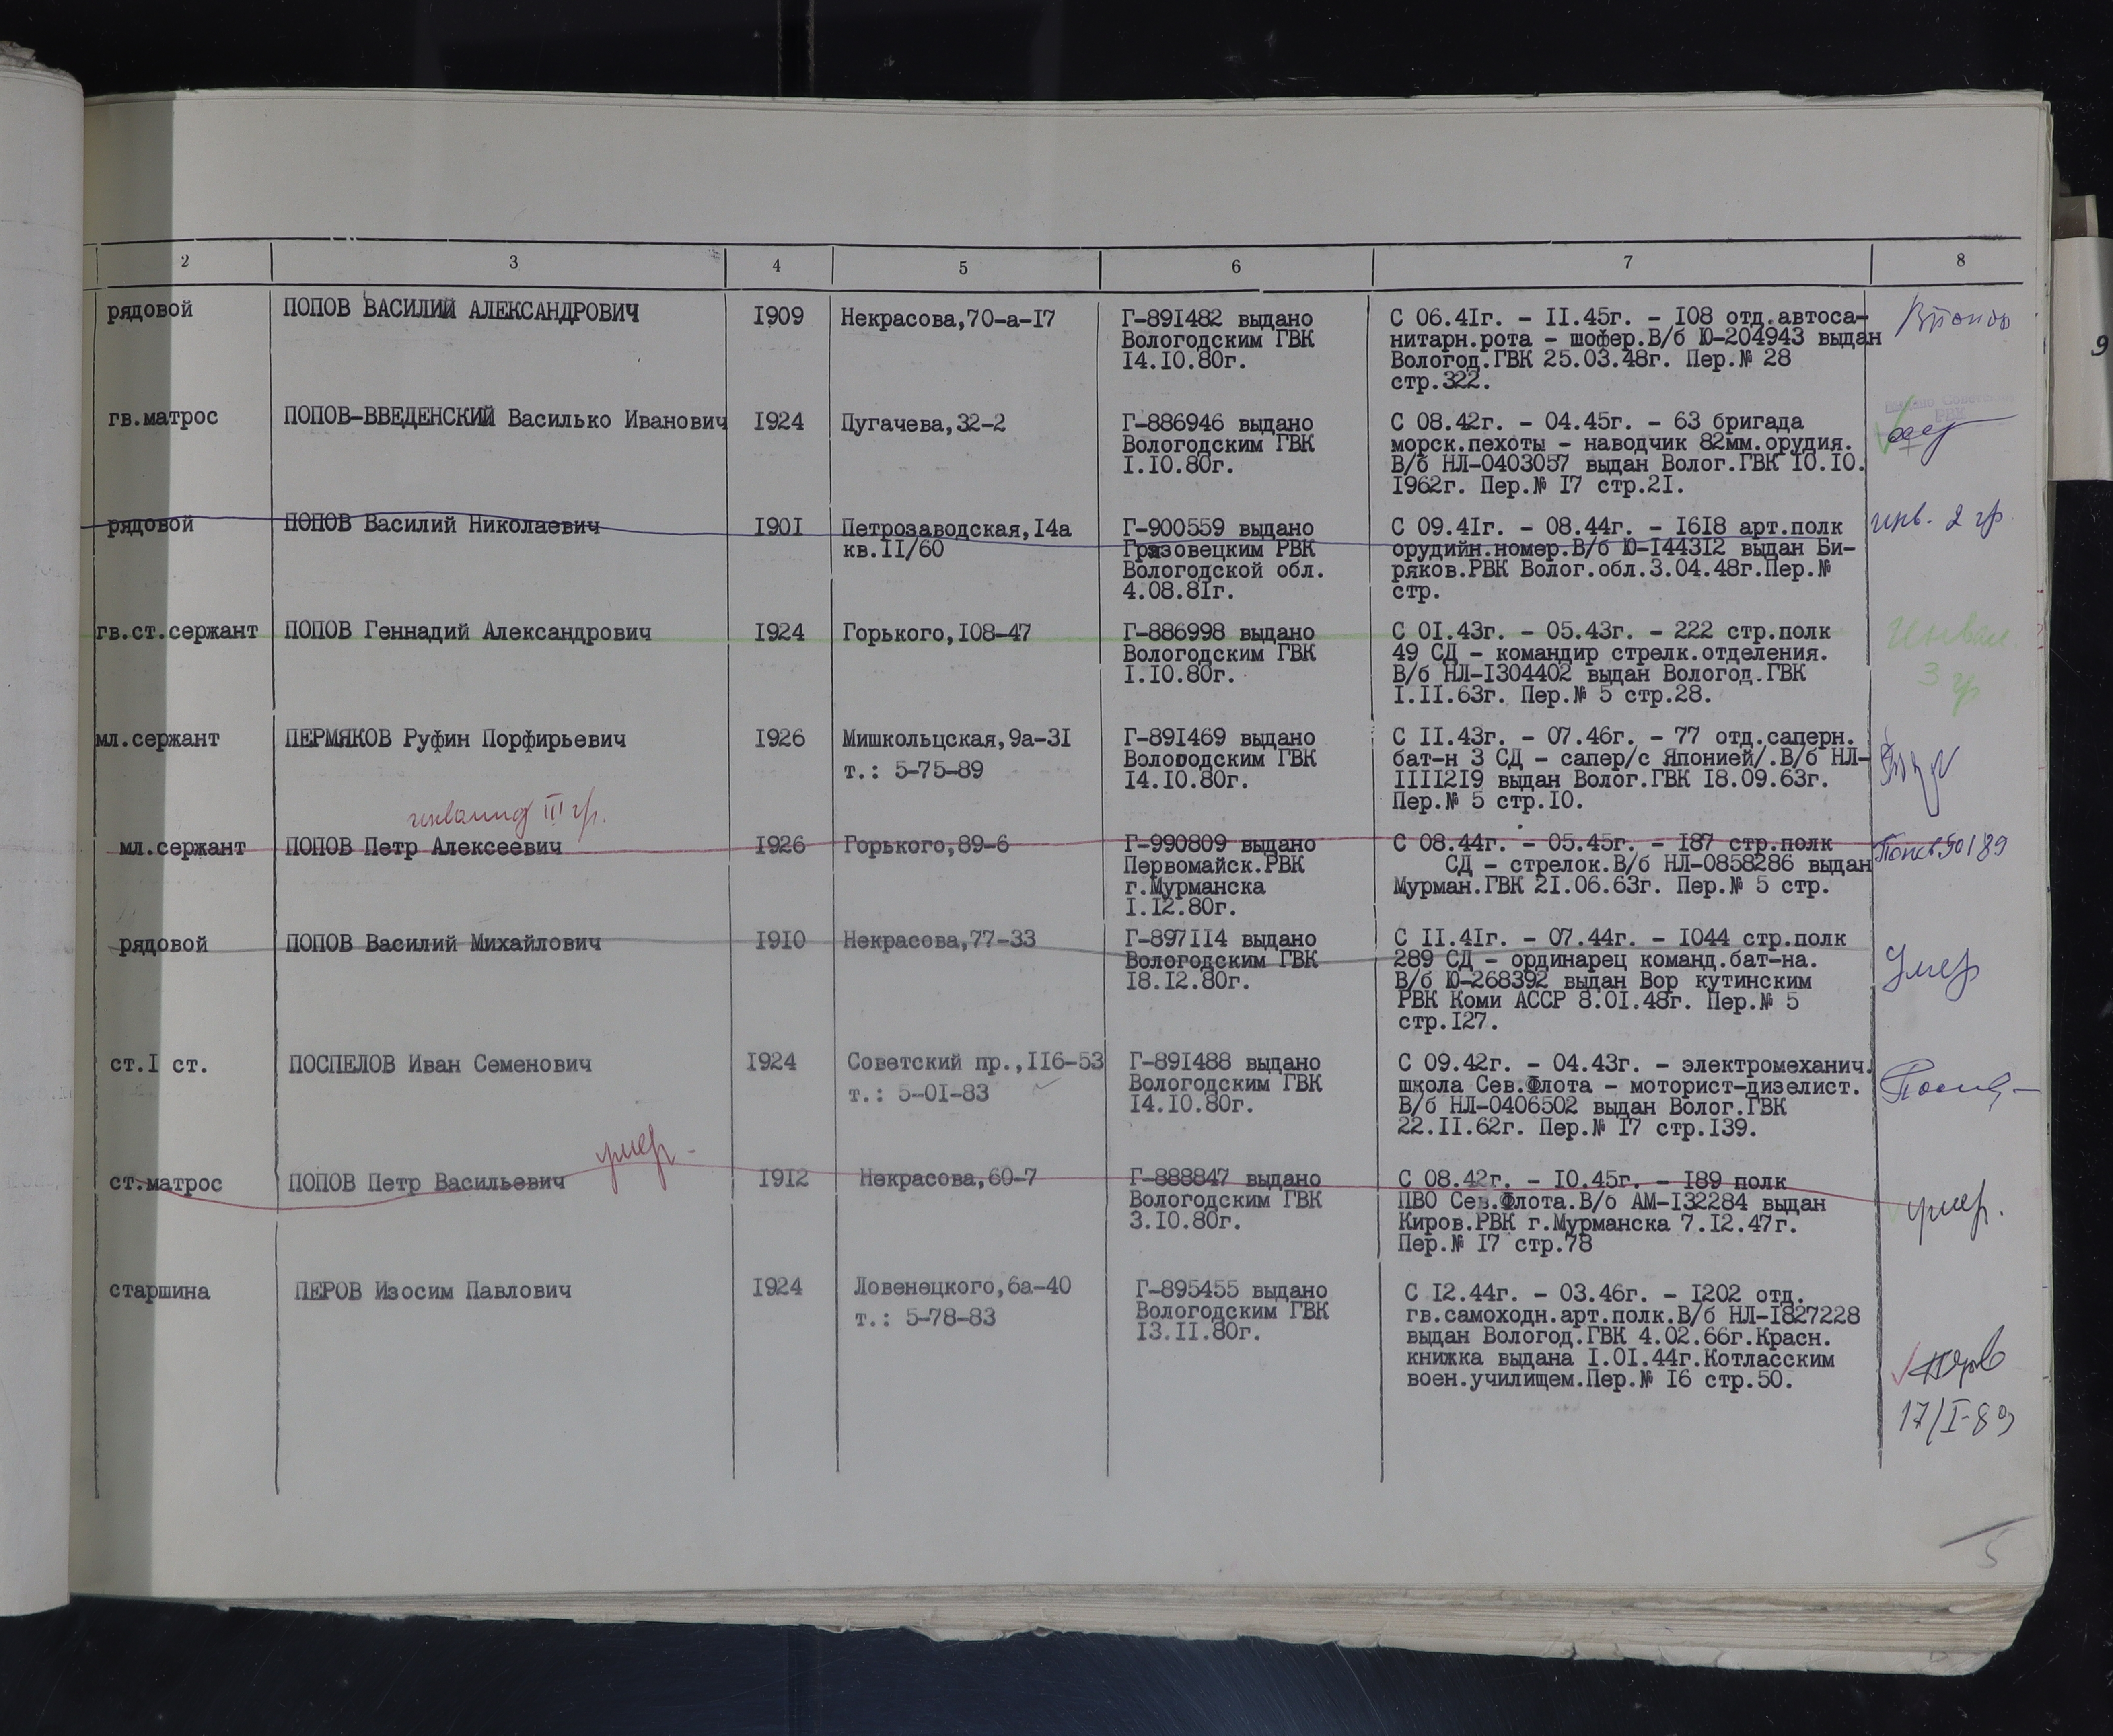 2 3 4 5 6 7 8
рядовой ПОПОВ ВАСИЛИЙ АЛЕКСАНДРОВИЧ 1909 Некрасова,70-а-17 Г-891482 выдано С 06.41г. - 11.45г. - 108 отд.автоса-
Вологодским ГВК нитарн.рота - шофер.В/б Ю-204943 выдан
14.10.80г. Вологод.ГВК 25.03.48г. Пер.№ 28
стр.322.
гв.матрос ПОПОВ-ВВЕДЕНСКИЙ Василько Иванович 1924 Пугачева,32-2 Г-886946 выдано С 08.42г. - 04.45г. - 63 бригада
Вологодским ГВК морск.пехоты - наводчик 82мм.орудия.
1.10.80г. В/б НЛ-0403057 выдан Волог.ГВК 10.10.
1962г. Пер.№ 17 стр.21.
рядовой ПОПОВ Василий Николаевич 1901 Петрозаводская,14а Г-900559 выдано С 09.41г. - 08.44г. - 1618 арт.полк инв. 2 гр.
кв.11/60 Грязовецким РВК орудийн.номер.В/б Ю-144312 выдан Би-
Вологодской обл. ряков.РВК Волог.обл.3.04.48г.Пер.№
4.08.81г. стр.
гв.ст.сержант ПОПОВ Геннадий Александрович 1924 Горького,108-47 Г-886998 выдано С 01.43г. - 05.43г. - 222 стр.полк Инвал.
Вологодским ГВК 49 СД - командир стрелк.отделения. 3 гр
1.10.80г. В/б НЛ-1304402 выдан Вологод.ГВК
1.11.63г. Пер.№ 5 стр.28.
мл.сержант ПЕРМЯКОВ Руфин Порфирьевич 1926 Мишкольцская,9а-31 Г-891469 выдано С 11.43г. - 07.46г. - 77 отд.саперн.
т.: 5-75-89 Вологодским ГВК бат-н 3 СД - сапер/с Японией/.В/б НЛ-
14.10.80г. 1111219 выдан Волог.ГВК 18.09.63г.
Пер.№ 5 стр.10.
инвалид III гр.
мл.сержант ПОПОВ Петр Алексеевич 1926 Горького,89-6 Г-990809 выдано С 08.44г. - 05.45г. - 187 стр.полк
Первомайск.РВК СД - стрелок.В/б НЛ-0858286 выдан
г.Мурманска Мурман.ГВК 21.06.63г. Пер.№ 5 стр.
1.12.80г.
рядовой ПОПОВ Василий Михайлович 1910 Некрасова,77-33 Г-897114 выдано С 11.41г. - 07.44г. - 1044 стр.полк Умер
Вологодским ГВК 289 СД - ординарец команд.бат-на.
18.12.80г. В/б Ю-268392 выдан Вор кутинским
РВК Коми АССР 8.01.48г. Пер.№ 5
стр.127.
ст.1 ст. ПОСПЕЛОВ Иван Семенович 1924 Советский пр.,116-53 Г-891488 выдано С 09.42г. - 04.43г. - электромеханич.
т.: 5-01-83 Вологодским ГВК школа Сев.Флота - моторист-дизелист.
14.10.80г. В/б НЛ-0406502 выдан Волог.ГВК
22.11.62г. Пер.№ 17 стр.139.
умер
ст.матрос ПОПОВ Петр Васильевич 1912 Некрасова,60-7 Г-888847 выдано С 08.42г. - 10.45г. - 189 полк умер.
Вологодским ГВК ПВО Сев.Флота.В/б АМ-132284 выдан
3.10.80г. Киров.РВК г.Мурманска 7.12.47г.
Пер.№ 17 стр.78
старшина ПЕРОВ Изосим Павлович 1924 Ловенецкого,6а-40 Г-895455 выдано С 12.44г. - 03.46г. - 1202 отд.
т.: 5-78-83 Вологодским ГВК гв.самоходн.арт.полк.В/б НЛ-1827228
13.11.80г. выдан Вологод.ГВК 4.02.66г.Красн.
книжка выдана 1.01.44г.Котласским
воен.училищем.Пер.№ 16 стр.50.
17/I-89
5
9